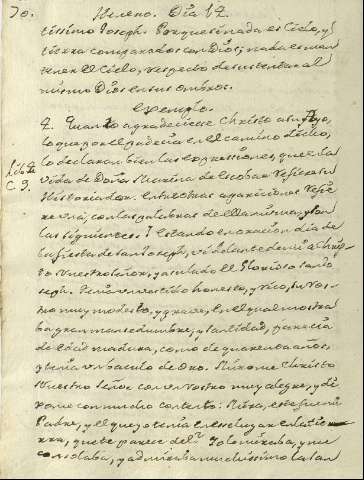 70. Noveno. Dia 17.
tissimo Joseph. Porque si nada es Cielo, y
tierra comparados con Dios; nada es man
tener el Cielo, respecto de sustentar al
mismo Dios en sus ombros.
Exemplo.
Quanto agradeciese Christo a su Ayo,
lo que por el padecia en el camino de
lo declaran bien las expressiones, que en la
Lib. 2
C. 9.
Vida de Doña Marina de Escobar refiere su
Historiador. Entre otras apariciones refie
re una con las palabras de ella misma, y son
las siguientes. Estando en oracion dia de
la fiesta de San Joseph, vi delante de mi a Chris
to nuestro Señor, y a su lado el Glorioso San Jo
seph. Tenia un vestido honesto, y rico, un ros
tro muy modesto, y grave, en el qual mostra
ba gran mansedumbre, y santidad, parecia
de edad madura, como de quarenta años,
y tenia un baculo de Oro. Mirome Christo
nuestro Señor con un rostro muy alegre, y di
xome con mucho contento: Mira, este fue mi
Padre, y el que yo tenia en esse lugar en la tie
rra, que te parece del? Yo le miraba, y me
consolaba, y admiraba muchissimo la san